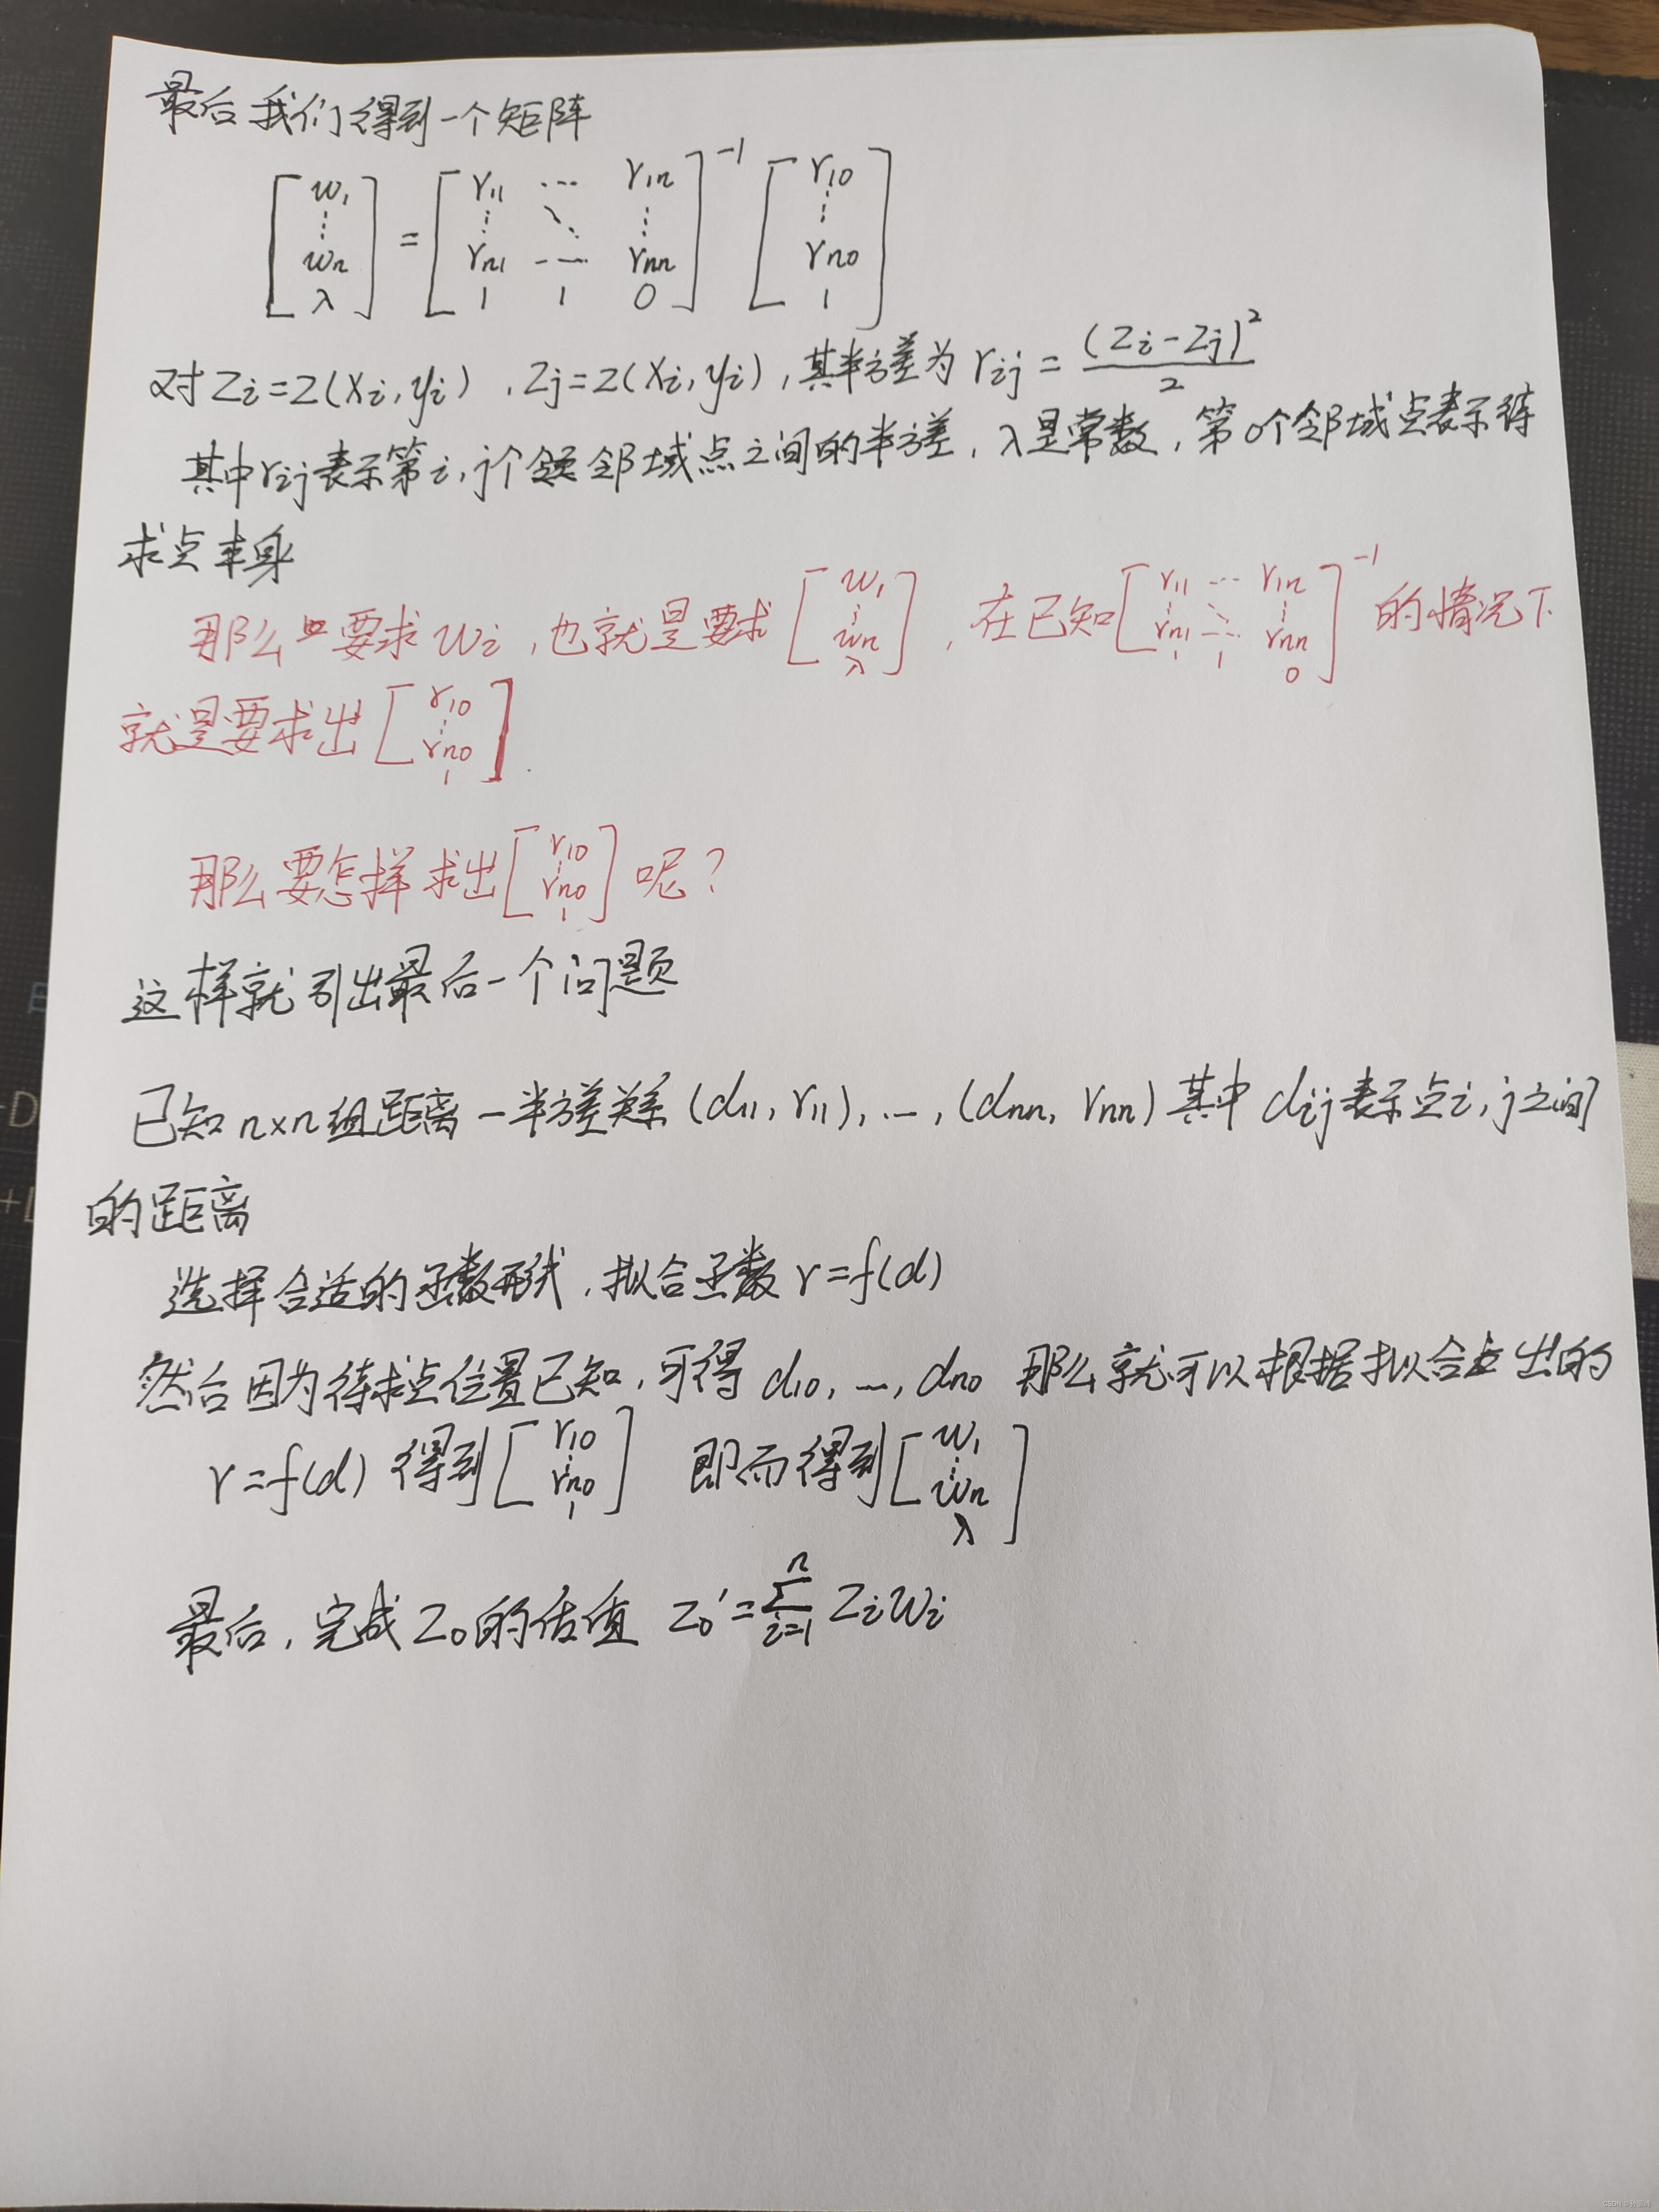 最后我们得到一个矩阵
[w₁ ⋮ wₙ λ] = [r₁₁ ⋯ r₁ₙ ⋮ ⋱ ⋮ rₙ₁ ⋯ rₙₙ 1 1 0]⁻¹ [r₁₀ ⋮ rₙ₀ 1]
对 Zi=Z(Xi,yi),Zj=Z(Xi,yi),其半方差为 rij = (Zi-Zj)²/2
其中rij表示第i,j个邻域点之间的半方差,λ是常数,第0个邻域点表示待
求点本身
那么要求wi,也就是要求[w₁ ⋮ wₙ λ],在已知[r₁₁ ⋯ r₁ₙ ⋮ ⋱ ⋮ rₙ₁ ⋯ rₙₙ 1 1 0]⁻¹的情况下
就是要求出[r₁₀ ⋮ rₙ₀ 1].
那么要怎样求出[r₁₀ ⋮ rₙ₀ 1]呢?
这样就引出最后一个问题
已知n×n组距离-半方差关系(d₁₁, r₁₁), …, (dₙₙ, rₙₙ)其中dij表示点i,j之间
的距离
选择合适的函数形状,拟合函数r=f(d)
然后因为待求点位置已知,可得d₁₀, …, dₙ₀ 那么就可以根据拟合出的
r=f(d) 得到[r₁₀ ⋮ rₙ₀ 1] 即而得到[w₁ ⋮ wₙ λ]
最后,完成Z₀的估值 Z₀'=∑ⁿᵢ₌₁ Ziwi